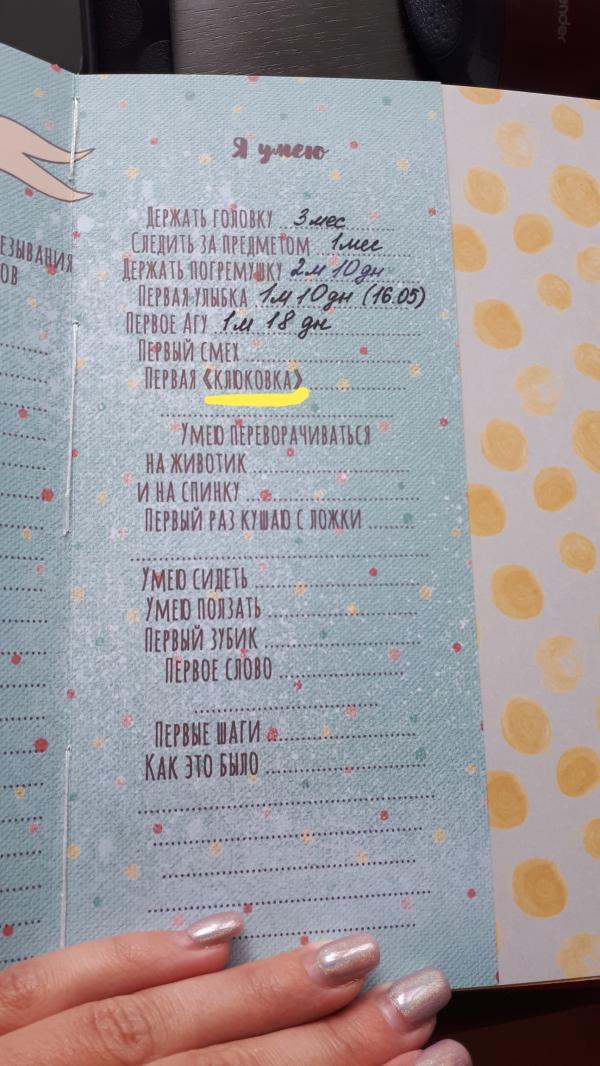 Я умею
ДЕРЖАТЬ ГОЛОВКУ 3 мес
СЛЕДИТЬ ЗА ПРЕДМЕТОМ 1 мес
ДЕРЖАТЬ ПОГРЕМУШКУ 2 м 10 дн
ПЕРВАЯ УЛЫБКА 1 м 10 дн (16.05)
ПЕРВОЕ АГУ 1 м 18 дн
ПЕРВЫЙ СМЕХ
ПЕРВАЯ «КЛЮКОВКА»
УМЕЮ ПЕРЕВОРАЧИВАТЬСЯ
НА ЖИВОТИК
И НА СПИНКУ
ПЕРВЫЙ РАЗ КУШАЮ С ЛОЖКИ
УМЕЮ СИДЕТЬ
УМЕЮ ПОЛЗАТЬ
ПЕРВЫЙ ЗУБИК
ПЕРВОЕ СЛОВО
ПЕРВЫЕ ШАГИ
КАК ЭТО БЫЛО